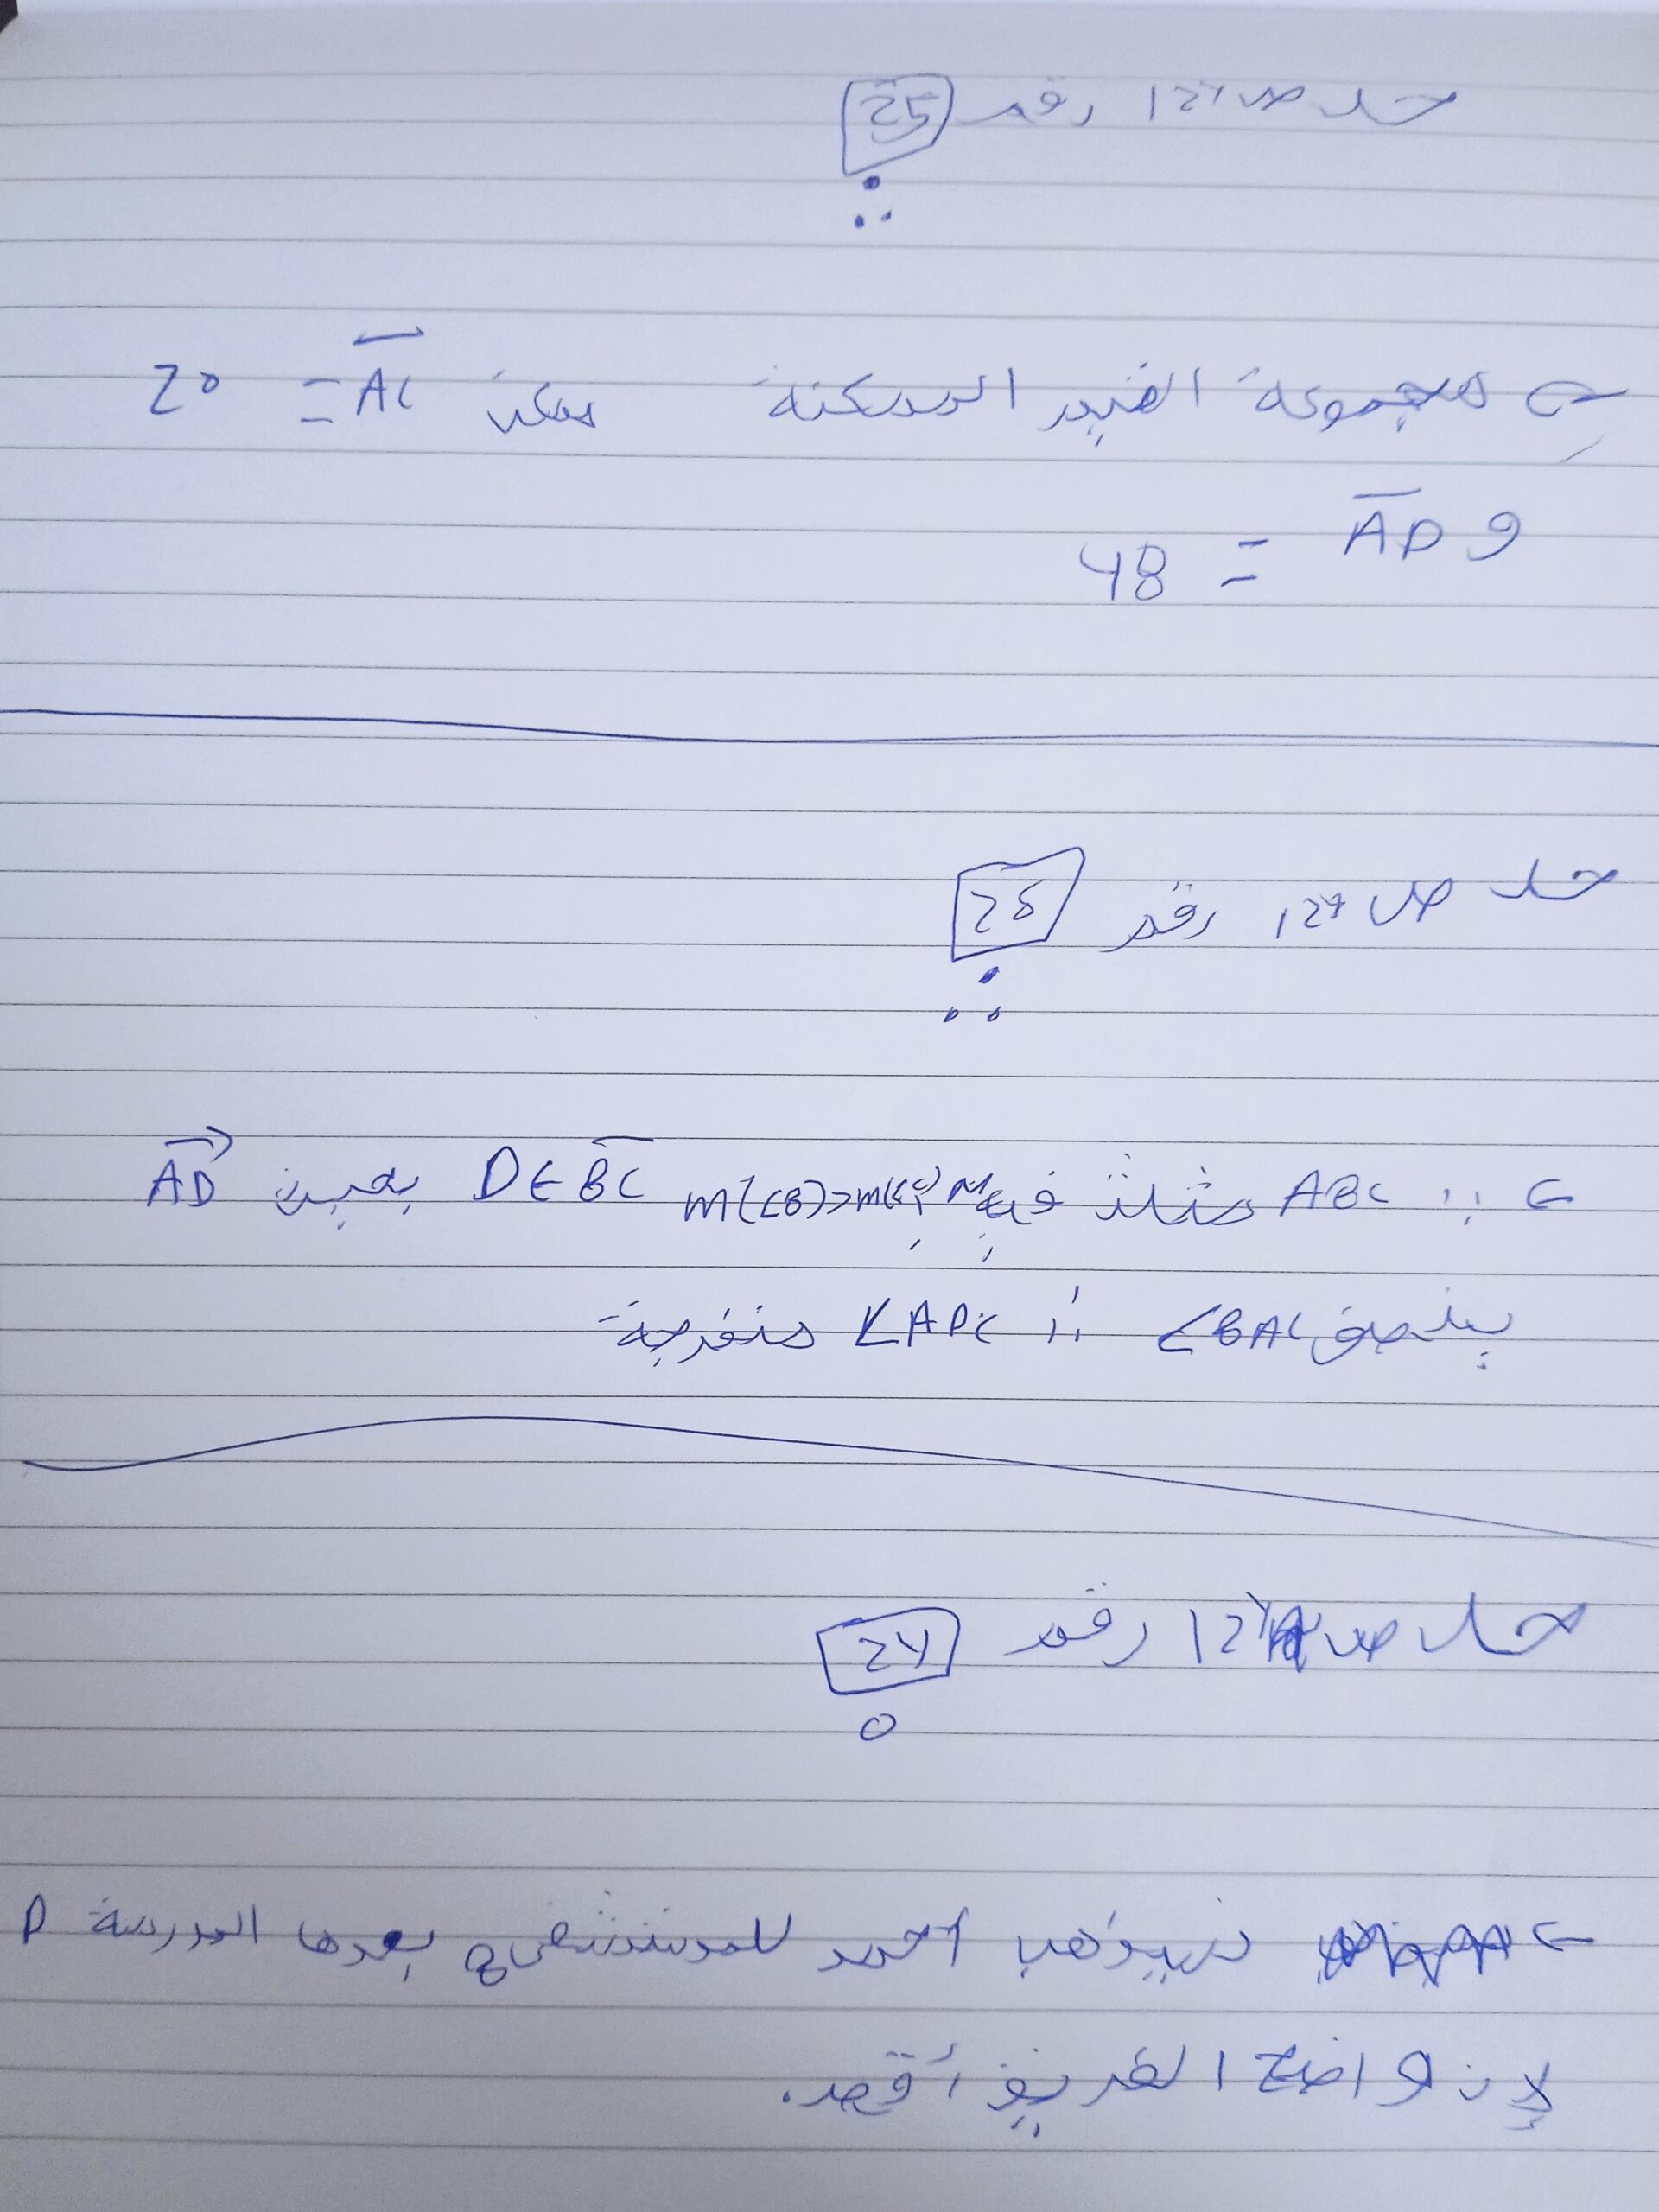 حل ص 127 رقم 25
مجموعة القيم الممكنة ممكن AC = 20
و AD = 48
حل ص 127 رقم 26
∵ ABC مثلث فيه m(<B)>m(<C) D∈BC بحيث AD
ينصف <BAC ∴ <ADC منفرجة
حل ص 127 رقم 27
سيذهب أحمد للمستشفى بعدها المدرسة D
لإن واضح الطريق أقصر.